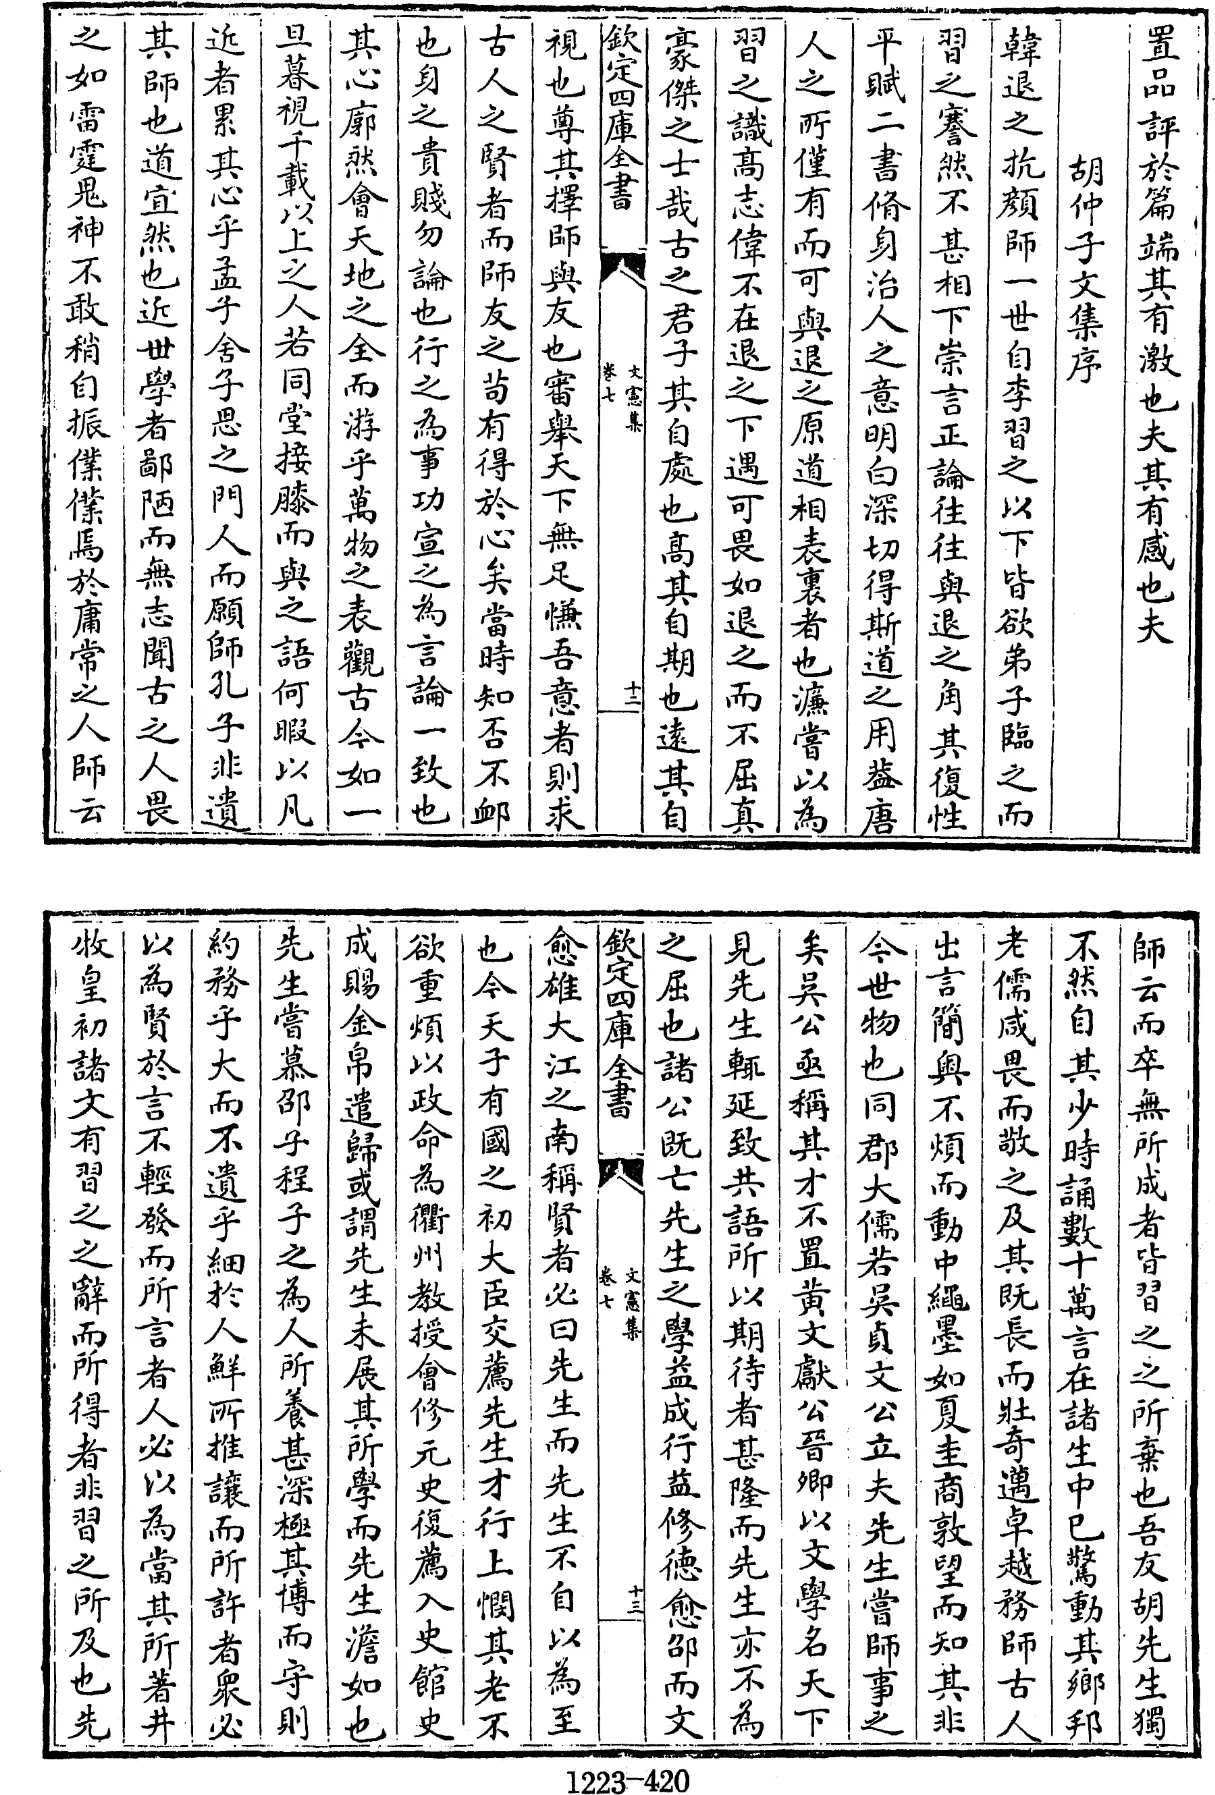 置品評於篇端其有激也夫其有感也夫
胡仲子文集序
韓退之抗顔師一世自李習之以下皆欲弟子臨之而
習之謇然不甚相下崇言正論往往與退之角其復性
平賦二書脩身治人之意明白深切得斯道之用葢唐
人之所僅有而可與退之原道相表裏者也濂嘗以為
習之識高志偉不在退之下遇可畏如退之而不屈真
豪傑之士哉古之君子其自處也高其自期也遠其自
欽定四庫全書
文憲集
卷七
十二
視也尊其擇師與友也審舉天下無足慊吾意者則求
古人之賢者而師友之茍有得於心矣當時知否不䘏
也身之貴賤勿論也行之為事功宣之為言論一致也
其心廓然會天地之全而游乎萬物之表觀古今如一
旦暮視千載以上之人若同堂接膝而與之語何暇以凡
近者累其心乎孟子舍子思之門人而願師孔子非遺
其師也道宜然也近世學者鄙陋而無志聞古之人畏
之如雷霆鬼神不敢稍自振僕僕焉於庸常之人師云
師云而卒無所成者皆習之之所棄也吾友胡先生獨
不然自其少時誦數十萬言在諸生中已驚動其鄉邦
老儒咸畏而敬之及其既長而壯奇邁卓越務師古人
出言簡奥不煩而動中繩墨如夏圭商敦望而知其非
今世物也同郡大儒若吳貞文公立夫先生嘗師事之
矣吳公亟稱其才不置黄文獻公晉卿以文學名天下
見先生輒延致共語所以期待者甚隆而先生亦不為
之屈也諸公既亡先生之學益成行益修徳愈邵而文
欽定四庫全書
文憲集
卷七
十三
愈雄大江之南稱賢者必曰先生而先生不自以為至
也今天子有國之初大臣交薦先生才行上憫其老不
欲重煩以政命為衢州教授會修元史復薦入史館史
成賜金帛遣歸或謂先生未展其所學而先生澹如也
先生嘗慕邵子程子之為人所養甚深極其博而守則
約務乎大而不遺乎細於人鮮所推讓而所許者衆必
以為賢於言不輕發而所言者人必以為當其所著井
牧皇初諸文有習之之辭而所得者非習之所及也先
1223-420